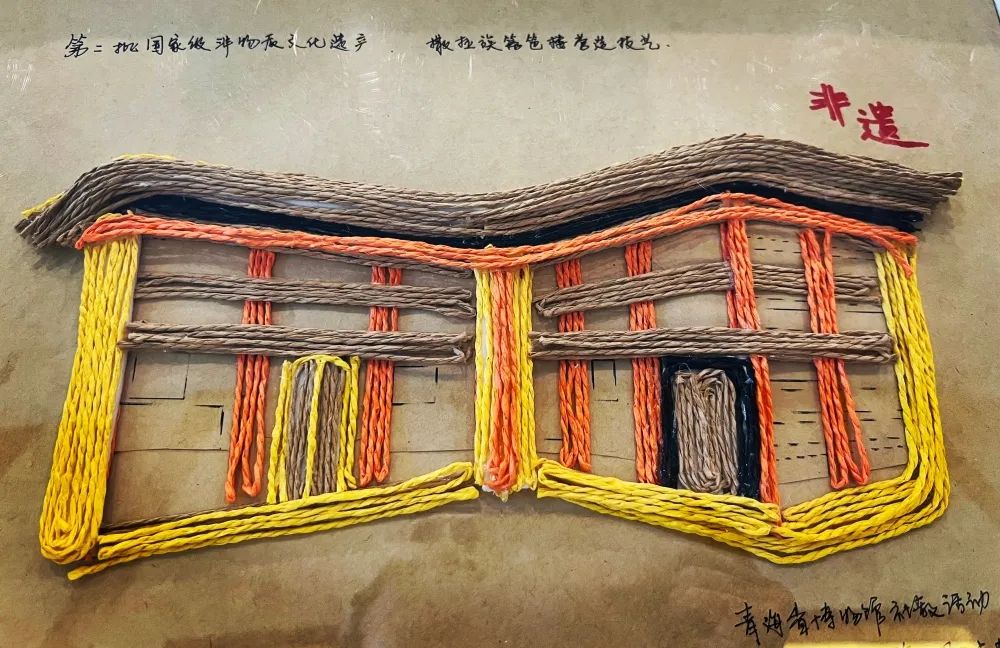 第二批国家级非物质文化遗产 撒拉族篱笆楼营造技艺.
非遗
青海省博物馆社教活动